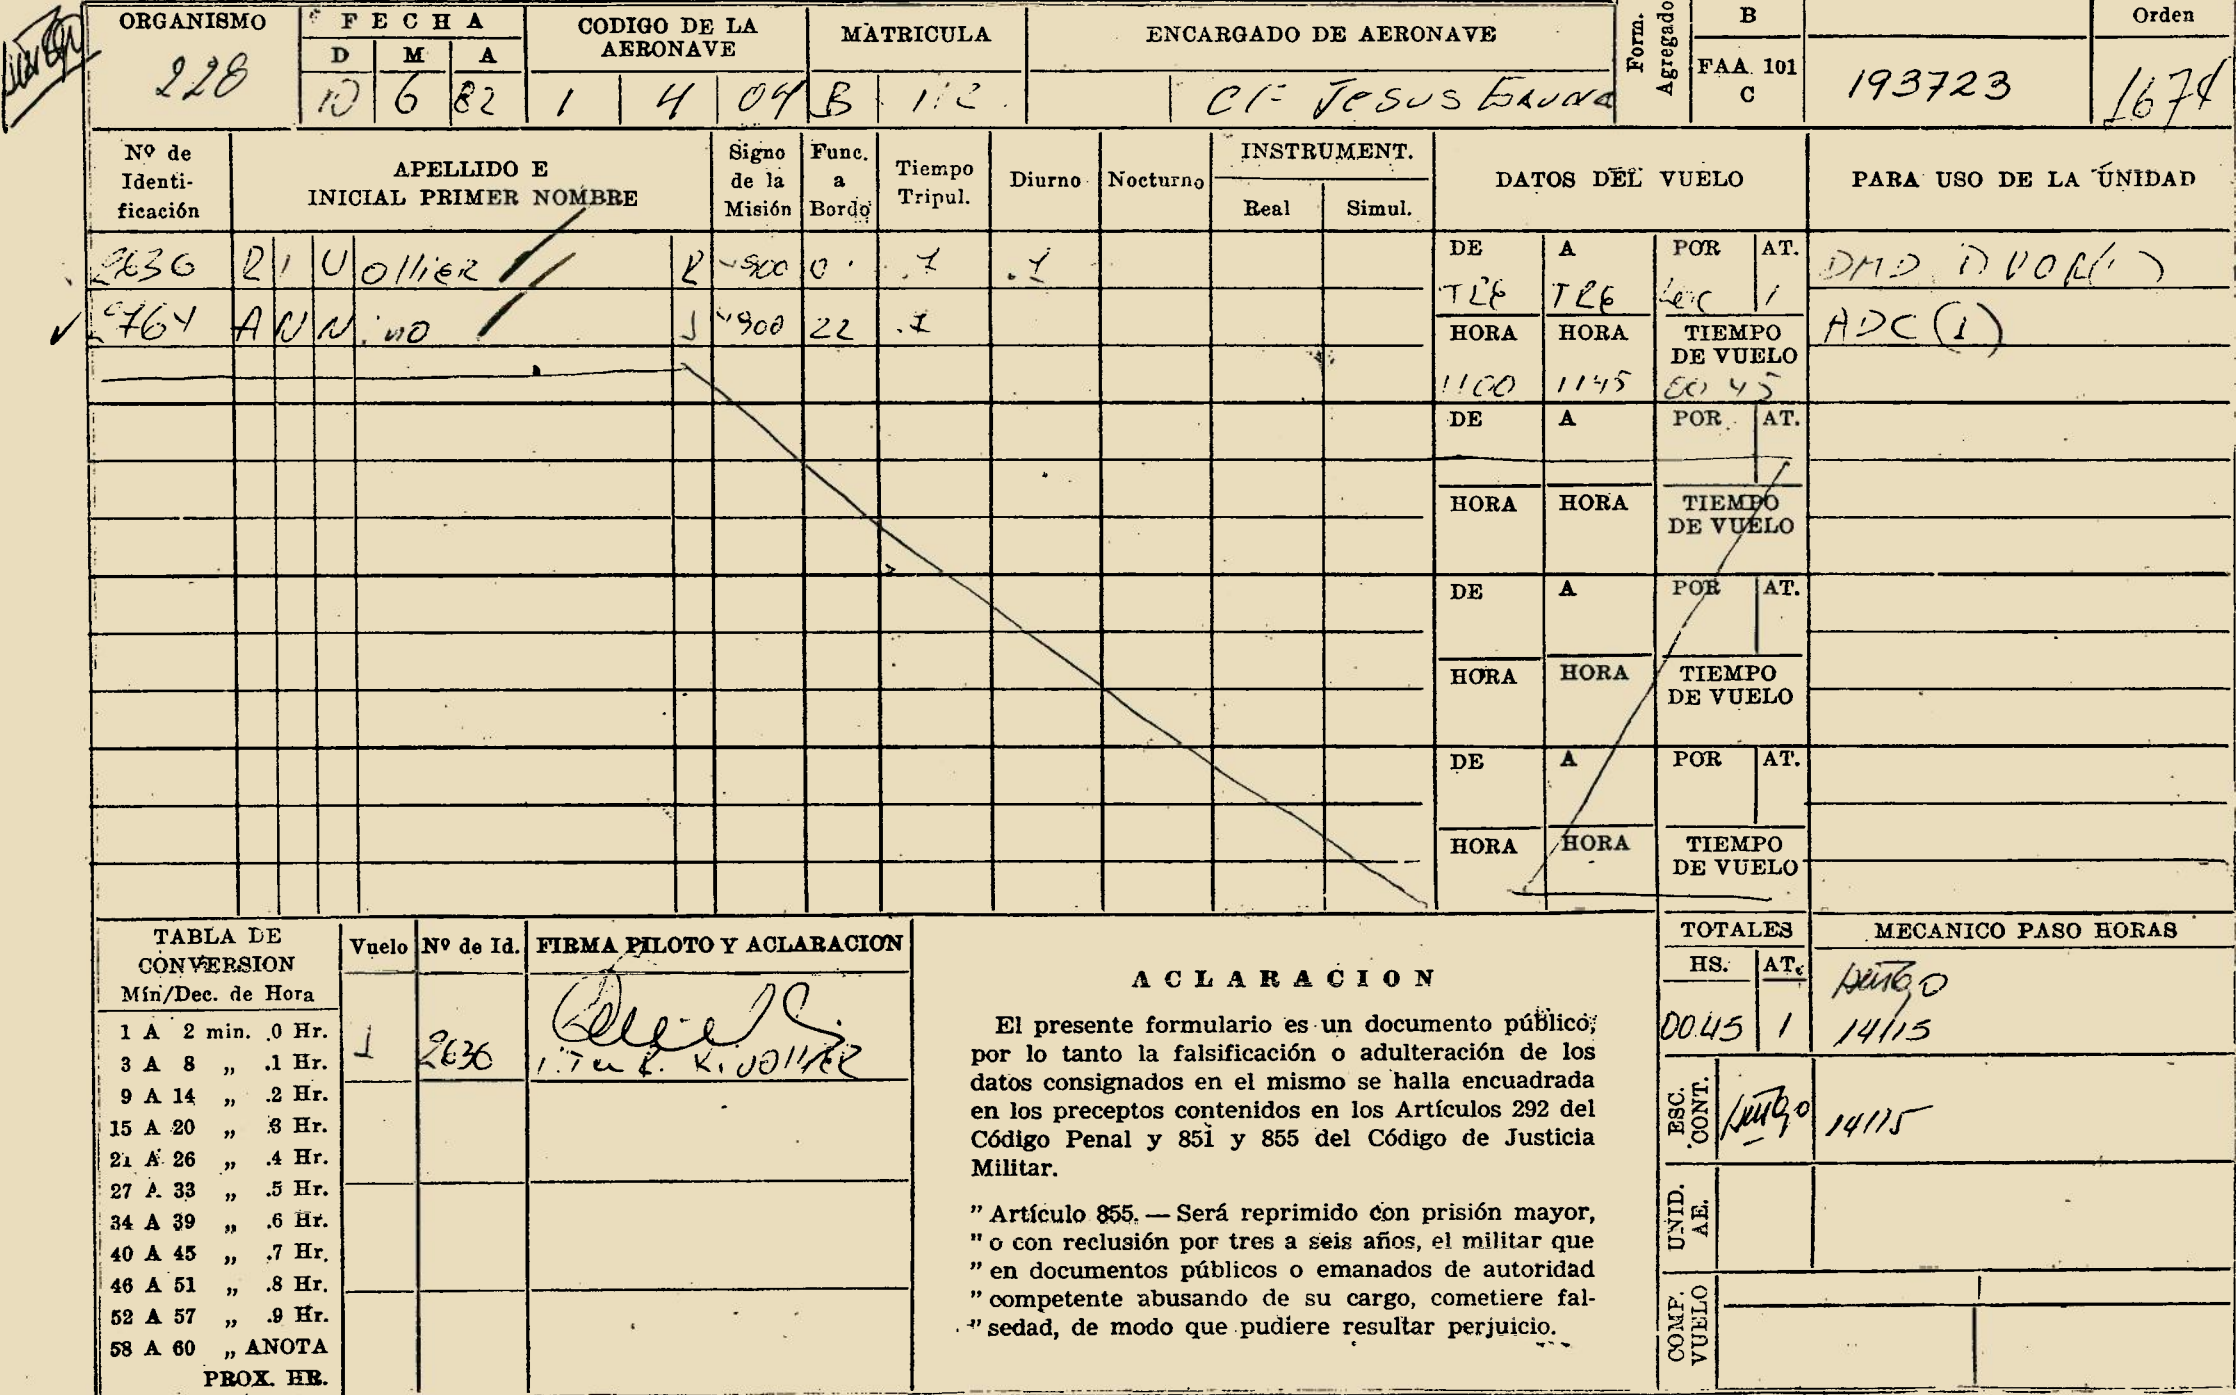 ORGANISMO
228
FECHA
D M A
10 6 82
CODIGO DE LA
AERONAVE
1 4 04
MATRICULA
B 112
ENCARGADO DE AERONAVE
Jesus
Form.
Agregado
B
FAA 101
C
193723
Orden
1674
Nº de
Identi-
ficación
APELLIDO E
INICIAL PRIMER NOMBRE
Signo
de la
Misión
Func.
a
Bordo
Tiempo
Tripul.
Diurno
Nocturno
INSTRUMENT.
Real Simul.
DATOS DEL VUELO
PARA USO DE LA UNIDAD
2636 RIVollier R 900 0 .7 .7
2764 ANNino J 900 22 .7
DE A POR AT.
TRE TRE Loc 1
HORA HORA TIEMPO
DE VUELO
1100 1145 00 45
ADC (1)
DE A POR AT.
HORA HORA TIEMPO
DE VUELO
DE A POR AT.
HORA HORA TIEMPO
DE VUELO
DE A POR AT.
HORA HORA TIEMPO
DE VUELO
TABLA DE
CONVERSION
Mín/Dec. de Hora
1 A 2 min. .0 Hr.
3 A 8 „ .1 Hr.
9 A 14 „ .2 Hr.
15 A 20 „ .3 Hr.
21 A 26 „ .4 Hr.
27 A 33 „ .5 Hr.
34 A 39 „ .6 Hr.
40 A 45 „ .7 Hr.
46 A 51 „ .8 Hr.
52 A 57 „ .9 Hr.
58 A 60 „ ANOTA
PROX. HR.
Vuelo Nº de Id. FIRMA PILOTO Y ACLARACION
1 2636 R. RIVOLLIER
ACLARACION
El presente formulario es un documento público,
por lo tanto la falsificación o adulteración de los
datos consignados en el mismo se halla encuadrada
en los preceptos contenidos en los Artículos 292 del
Código Penal y 851 y 855 del Código de Justicia
Militar.
" Artículo 855. — Será reprimido con prisión mayor,
" o con reclusión por tres a seis años, el militar que
" en documentos públicos o emanados de autoridad
" competente abusando de su cargo, cometiere fal-
" sedad, de modo que pudiere resultar perjuicio.
TOTALES
HS. AT.
00.45 1
MECANICO PASO HORAS
14115
ESC.
CONT.
14115
UNID.
AE.
COMP.
VUELO